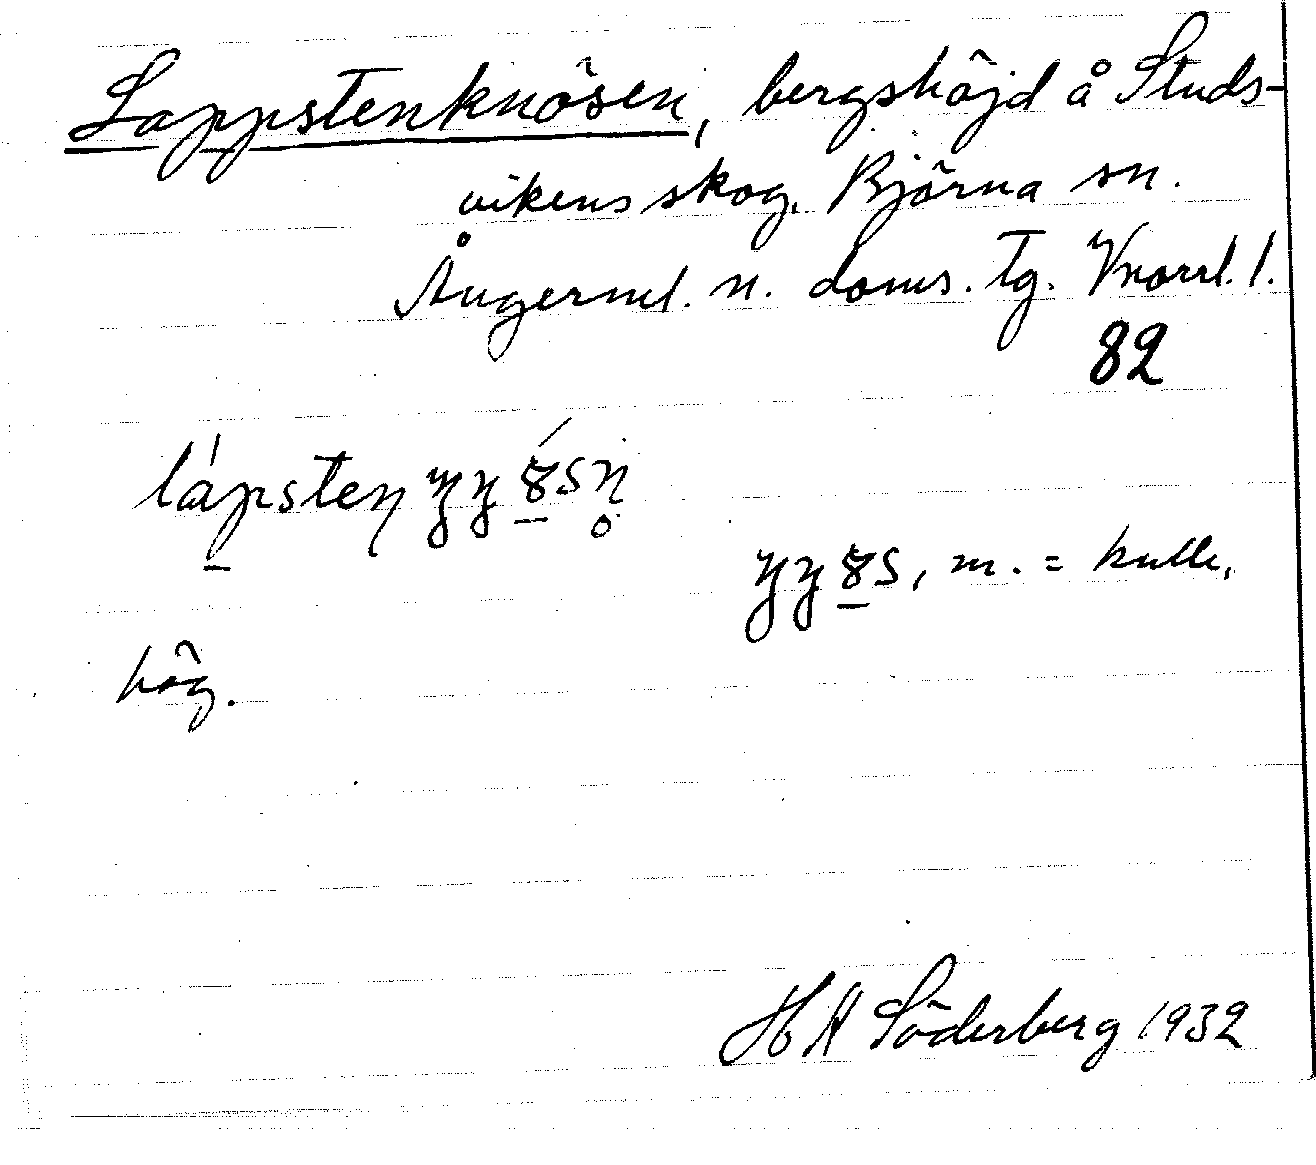 Lappstenknösen, bergshöjd å Studs-
vikens skog, Björna sn.
Ångerml. n. doms. tg. Vnorrl. l.
82
m. = kulle,
hög.
H A Söderberg 1932